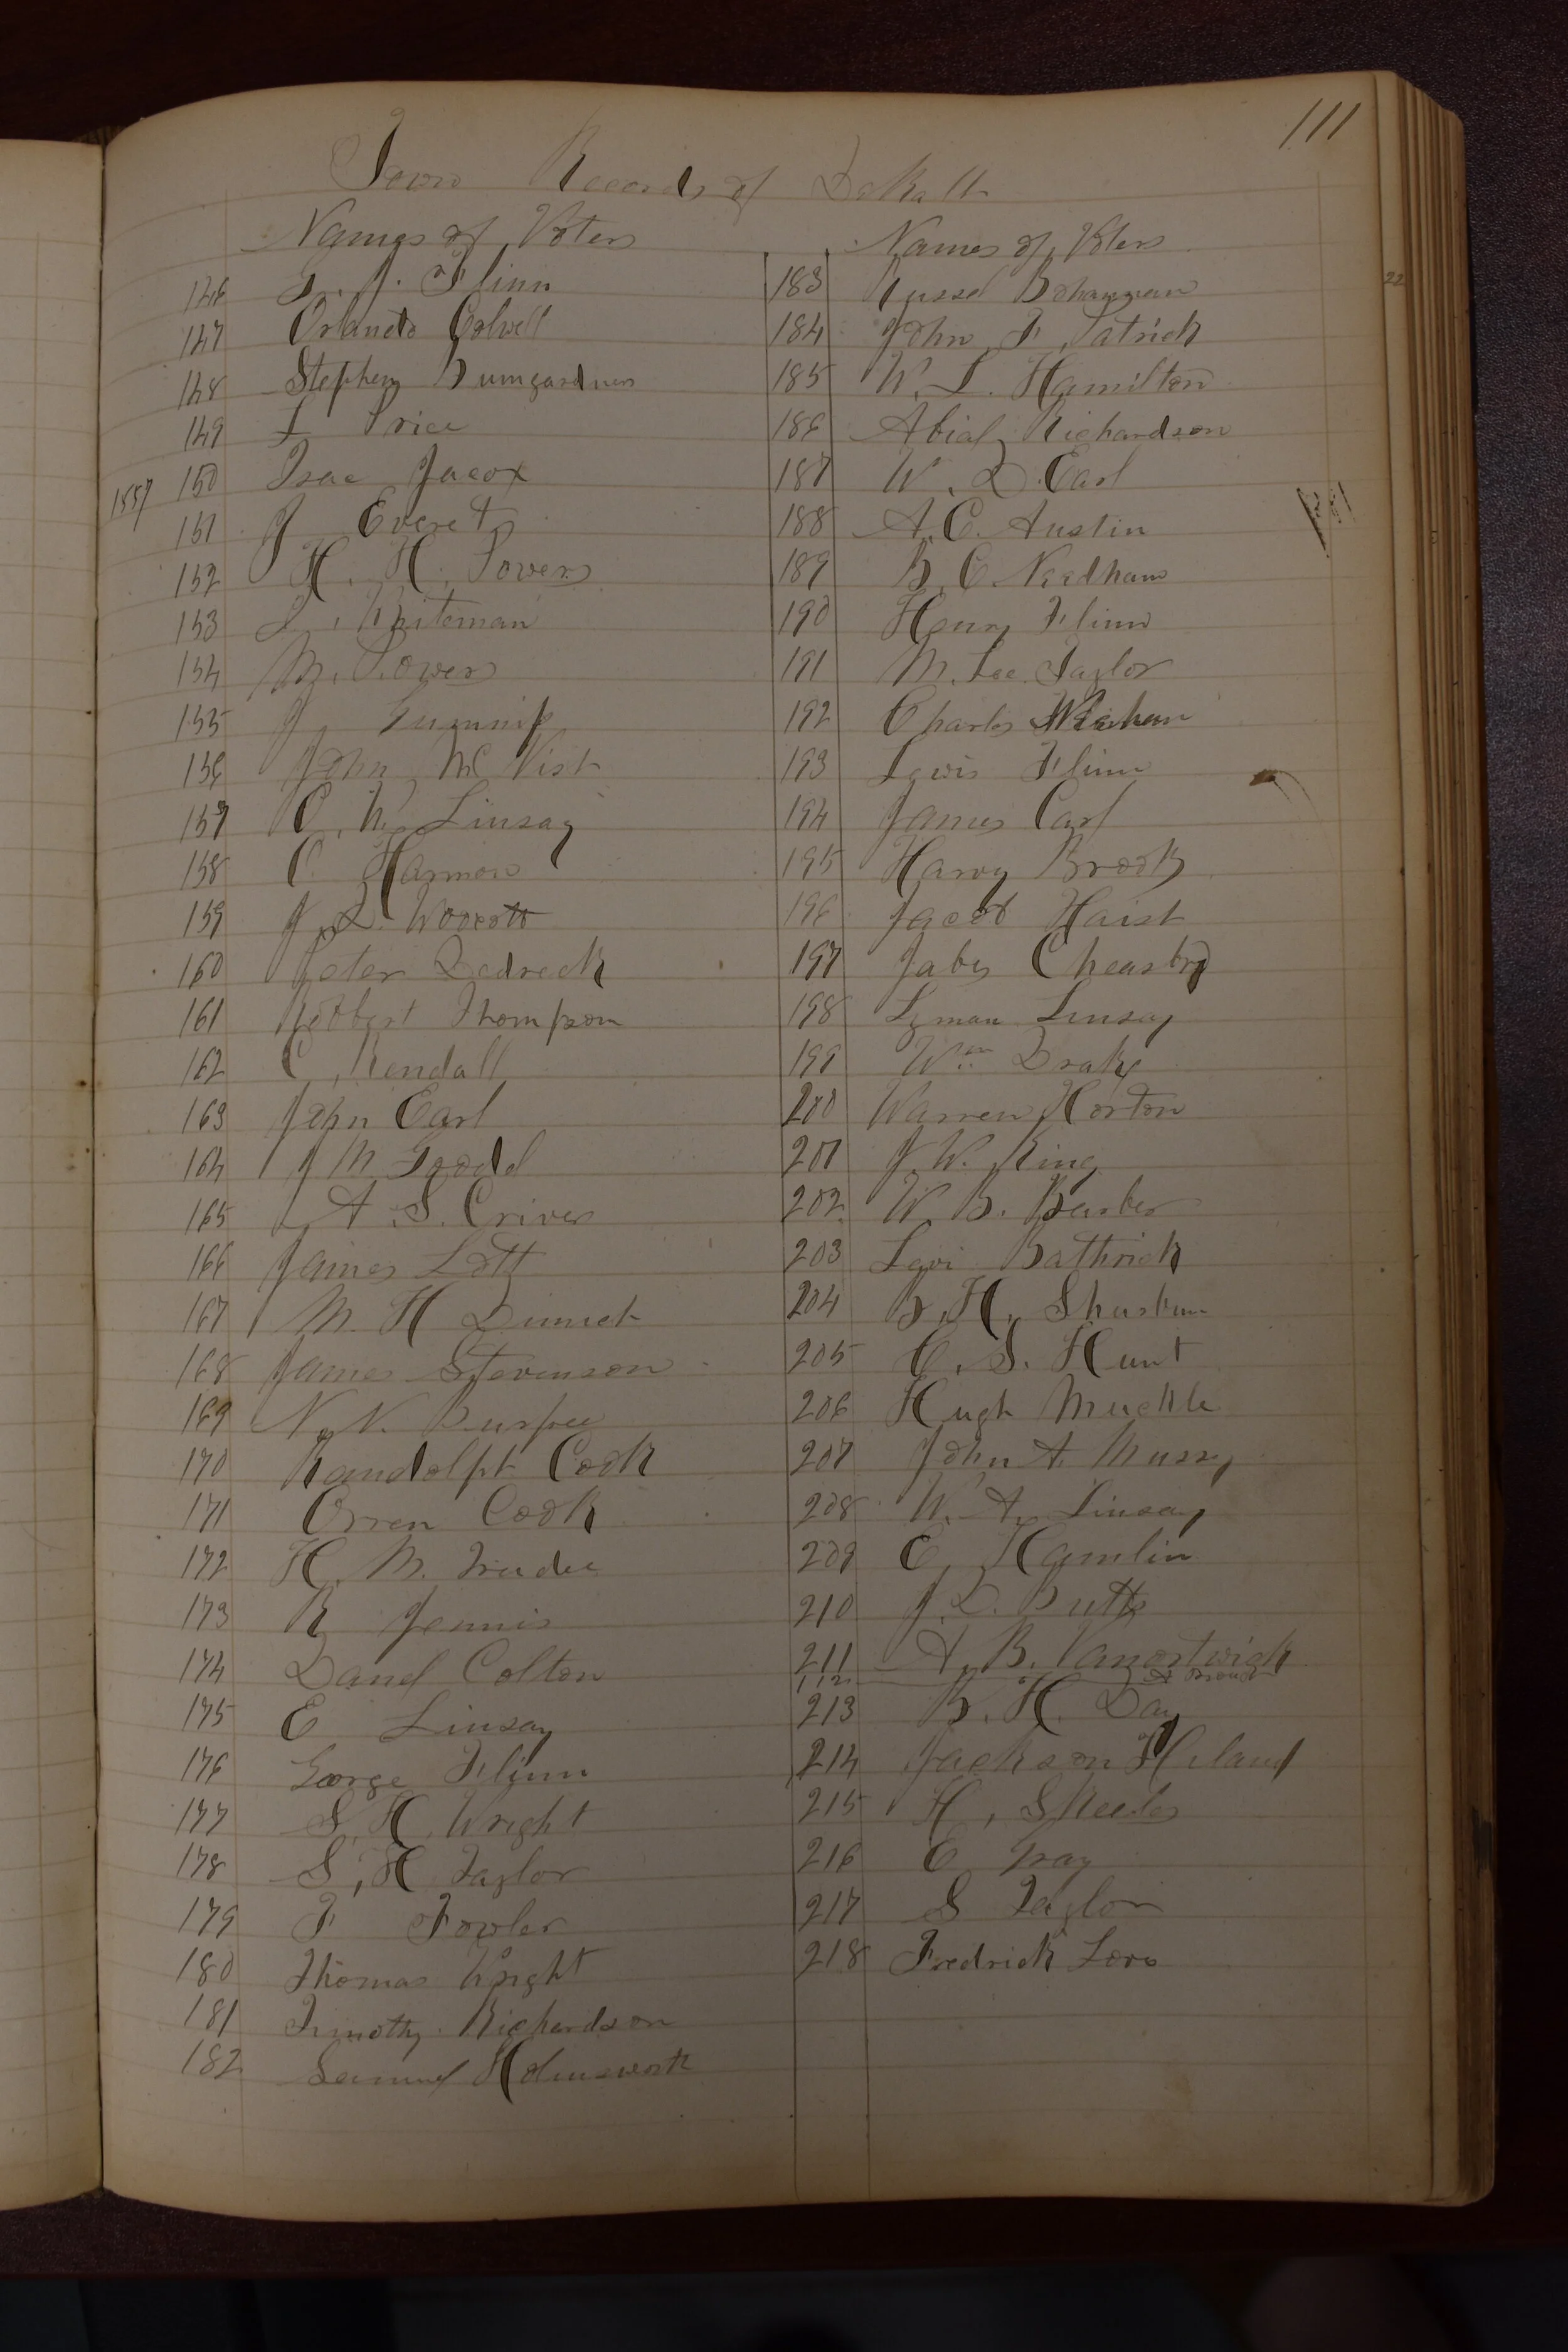 111
Town Records of DeKalb
Names of Voters
146 G. J. Flinn
147 Orlando Colwell
148 Stephen Bumgardner
149 L Price
1857 150 Isac Jacox
151 J Everet
152 H. H. Powers
153 L. Whiteman
154 M. Powers
155 J Gunnip
156 John Mc Vist
157 C. W. Linsay
158 C. Harmon
159 J. L.
160 Peter Dedreck
161 Robbert Thompson
162 C. Kendall
163 John Earl
164 J M Goodd
165 A. S. Criver
166 James Lott
167 M. H Dimick
168 James Stevenson
169 N. N. Burpee
170 Randolph Cook
171 Orren Cook
172 H. M. Trude
173 R Jennis
174 Danel Colton
175 E Linsay
176 George Flinn
177 S. H. Wright
178 S. H. Taylor
179 F Fowler
180 Thomas Wright
181 Timothy Richardson
182 Samuel Holmsworth
Names of Voters
183 Russel Bohannan
184 John F. Patrick
185 W. L. Hamilton
186 Abial Richardson
187 W. D. Earl
188 A. C. Austin
189 B. C. Needham
190 Henry Flinn
191 M. Lee Taylor
192 Charles
193 Lewis Flinn
194 James Carl
195 Harvy Brooks
196 Jacob Haist
197 Jabes Cheasbro
198 Lyman Linsay
199 Wm Drake
200 Warren Horton
201 J. W. King
202 W. B. Barber
203 Levi Bathrick
204 B. H.
205 C. S. Hunt
206 Hugh Muckle
207 John A. Mussy
208 W. A. Linsay
209 E. Hamlin
210 J. D. Butts
211 A. B. Vanortwick
112
213 B. H. Day
214 Jackson Hiland
215 H. Skeels
216 E Gray
217 S Taylor
218 Fredrick Love
22